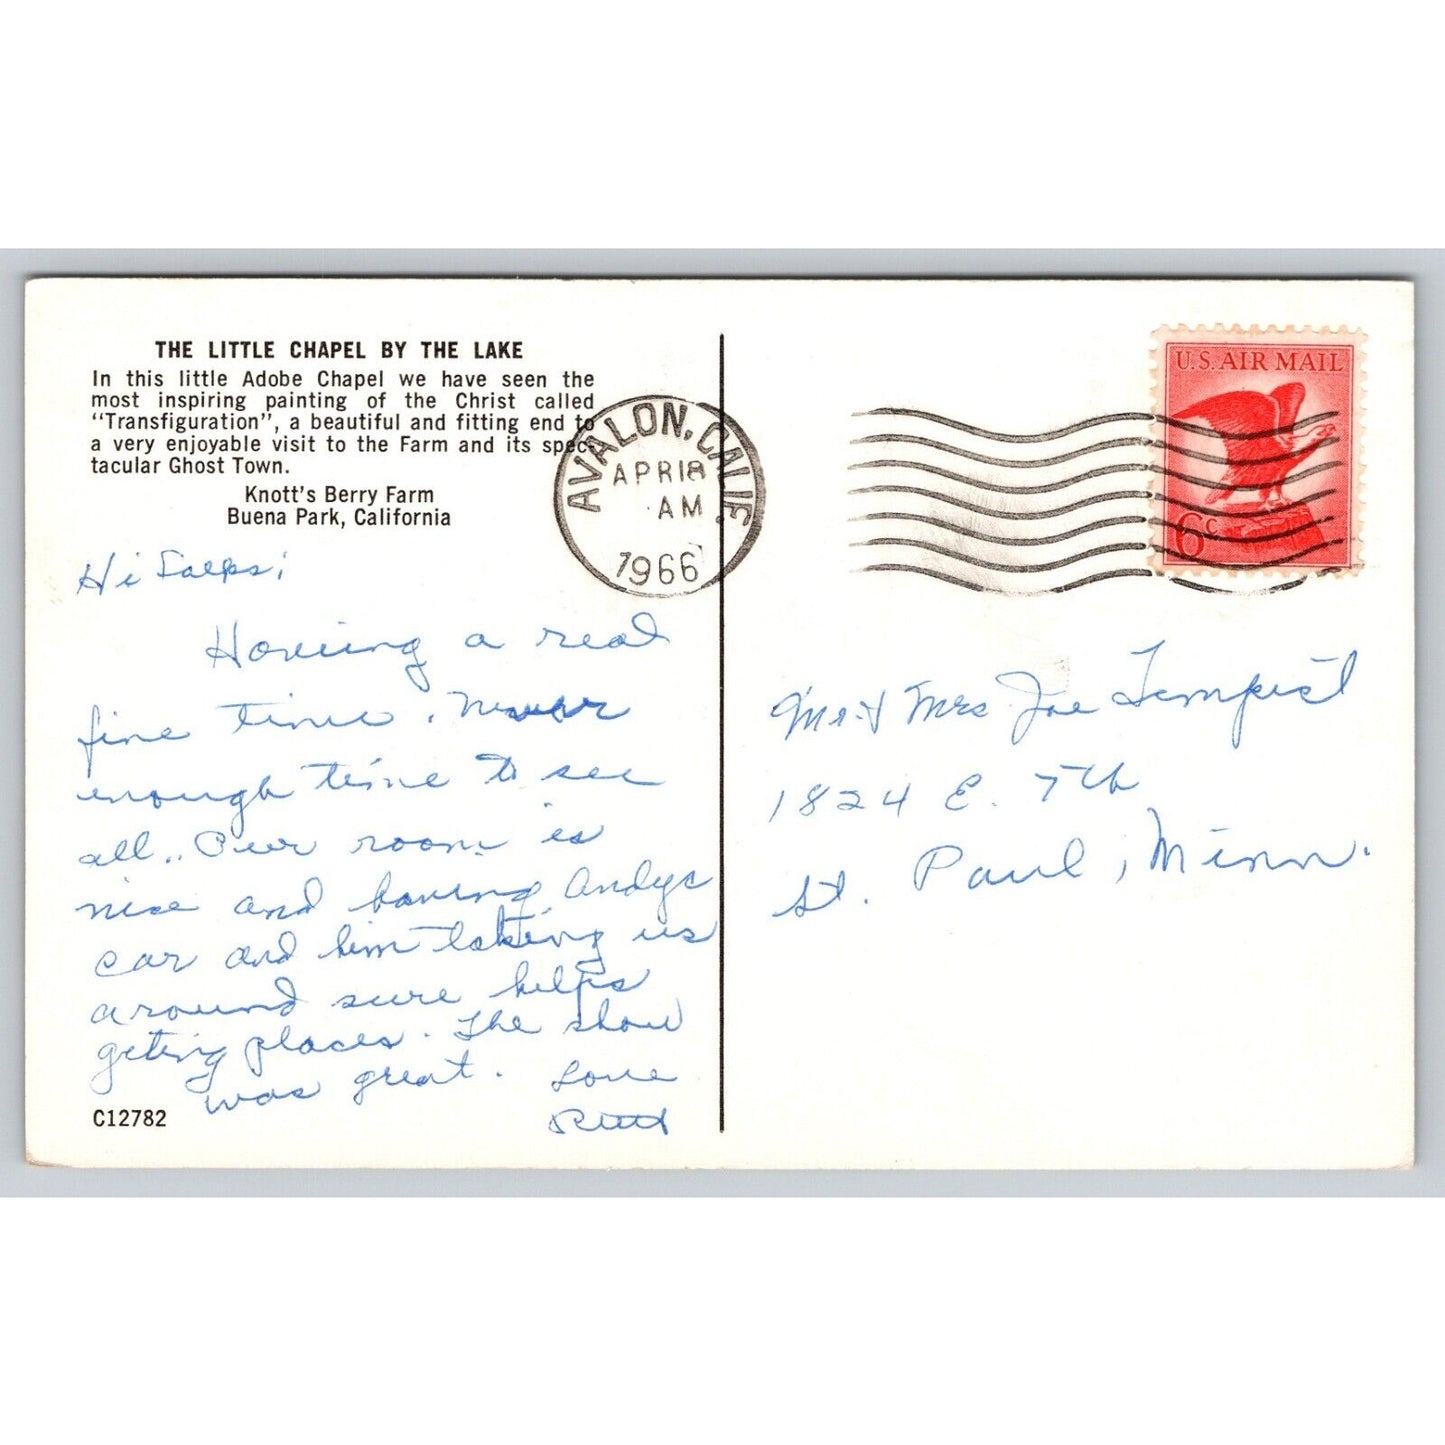 THE LITTLE CHAPEL BY THE LAKE
In this little Adobe Chapel we have seen the
most inspiring painting of the Christ called
"Transfiguration", a beautiful and fitting end to
a very enjoyable visit to the Farm and its spec-
tacular Ghost Town.
Knott's Berry Farm
Buena Park, California
Hi Folks;
Having a real
fine time. Never
enough time to see
all.. Our room is
nice and having Andys
car and him taking us
around sure helps
geting places. The show
was great. Love
Ruth
C12782
AVALON, CALIF.
APR 18
AM
1966
U.S. AIR MAIL
6c
Mr & Mrs Joe Tempest
1824 E. 7th
St. Paul, Minn.